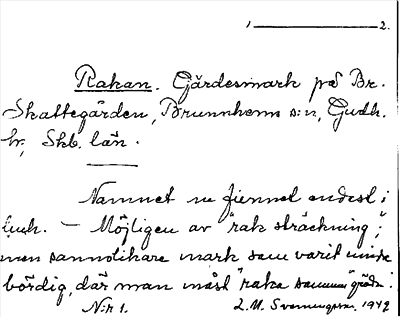 1 ――― 2.
Rakan. Gärdesmark på Br.
Skattegården, Brunnhems s:n, Gudh.
hr, Skb. län.
Namnet nu finnes endast i
luh. – Möjligen av "rak sträckning",
men sannolikare mark som varit mindre
bördig, där man måst "raka samman" gröda.
N:r 1. L. M. Svenungsson. 1942